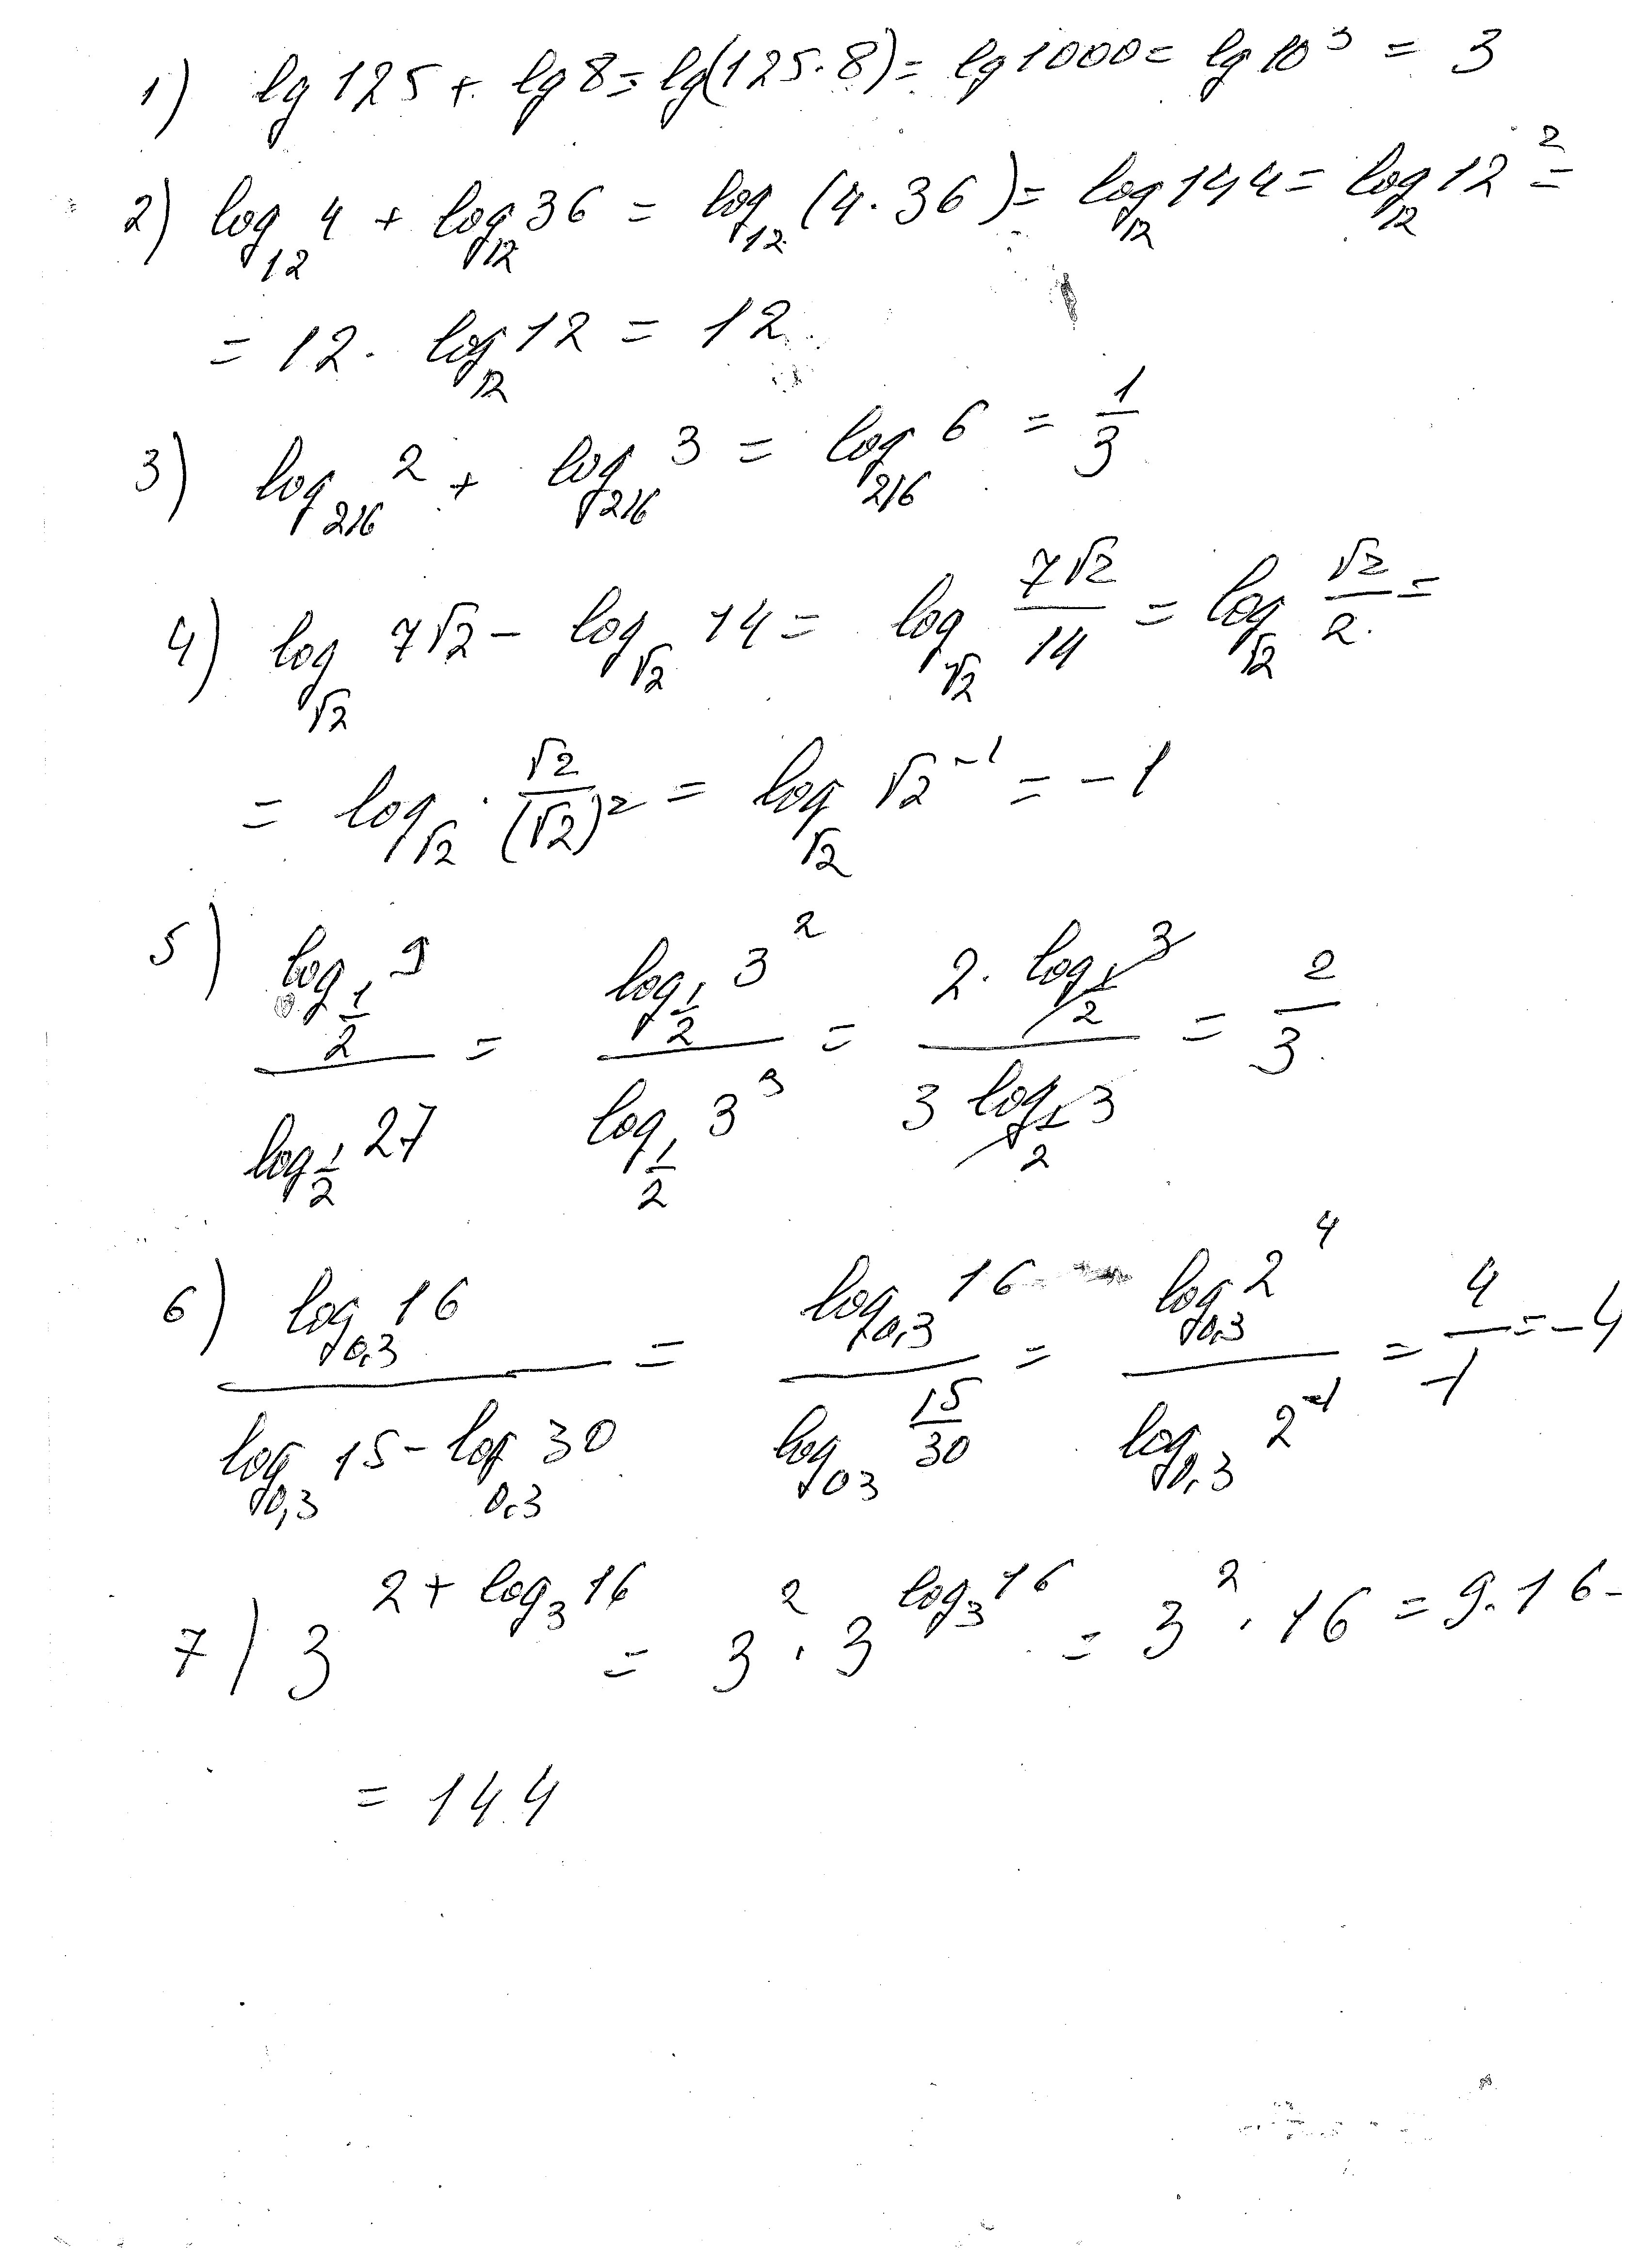 1) lg 125 + lg 8 = lg(125·8) = lg 1000 = lg 10³ = 3
2) log₁₂ 4 + log₁₂ 36 = log₁₂ (4·36) = log₁₂ 144 = log₁₂ 12² =
= 12 · log₁₂ 12 = 12
3) log₂₁₆ 2 + log₂₁₆ 3 = log₂₁₆ 6 = 1/3
4) log_√2 7√2 − log_√2 14 = log_√2 (7√2/14) = log_√2 (√2/2) =
= log_√2 · (√2/(√2)²) = log_√2 √2⁻¹ = −1
5) (log_(1/2) 9)/(log_(1/2) 27) = (log_(1/2) 3²)/(log_(1/2) 3³) = (2 · log_(1/2) 3)/(3 log_(1/2) 3) = 2/3
6) (log_0,3 16)/(log_0,3 15 − log_0,3 30) = (log_0,3 16)/(log_03 (15/30)) = (log_0,3 2⁴)/(log_0,3 2⁻¹) = 4/−1 = −4
7) 3^(2 + log₃ 16) = 3² · 3^(log₃ 16) = 3² · 16 = 9·16 -
= 144